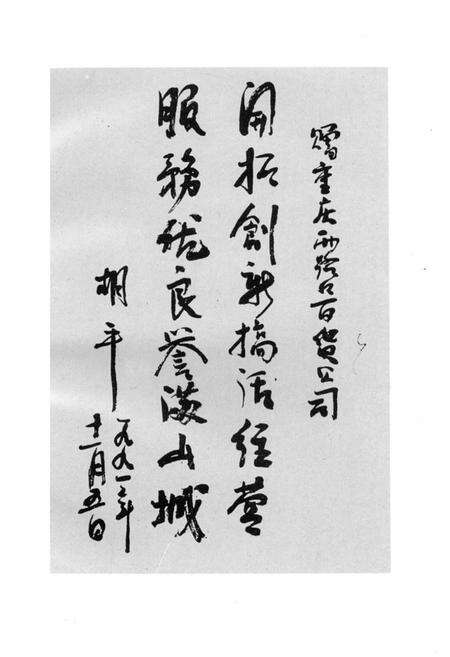 贈重庆两路口百貨公司
開拓創新搞活经营
服務优良誉满山城
胡平
一九九一年
十一月五日